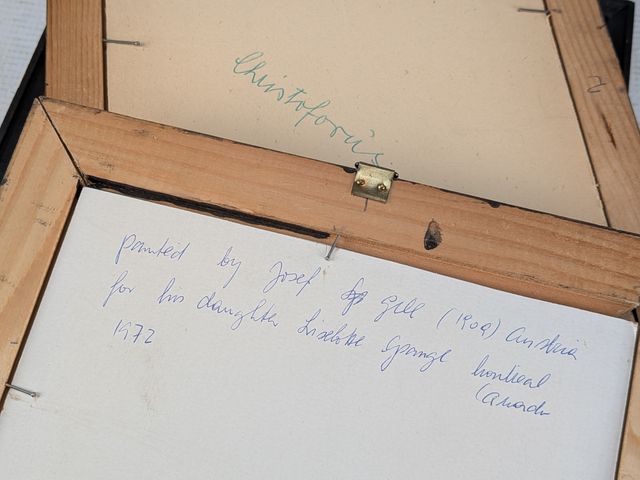 Christoforus
painted by Josef Gell (1909) Austria
for his daughter Liselotte Spangl Montreal
Canada
1972